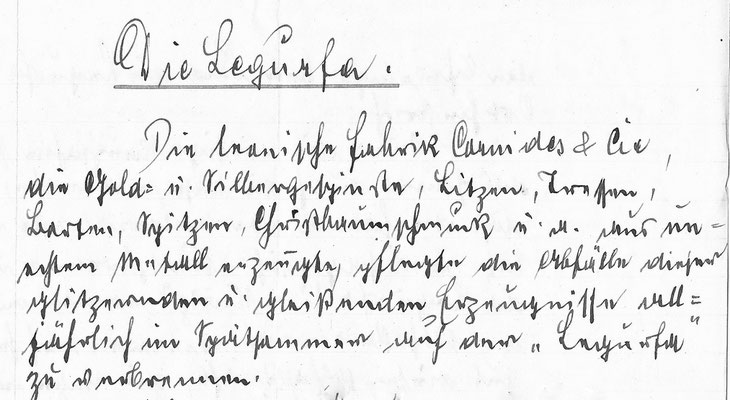 Die Legurfa.
Die leonische Fabrik Cornides & Cie,
die Gold= u. Silbergespinste, Litzen, Tressen,
Borten, Spitzen, Christbaumschmuck u. a. aus un=
echtem Metall erzeugte, pflegte die Abfälle dieser
glitzernden u. gleißenden Erzeugnisse all=
jährlich im Spätsommer auf der „Legurfa"
zu verbrennen.